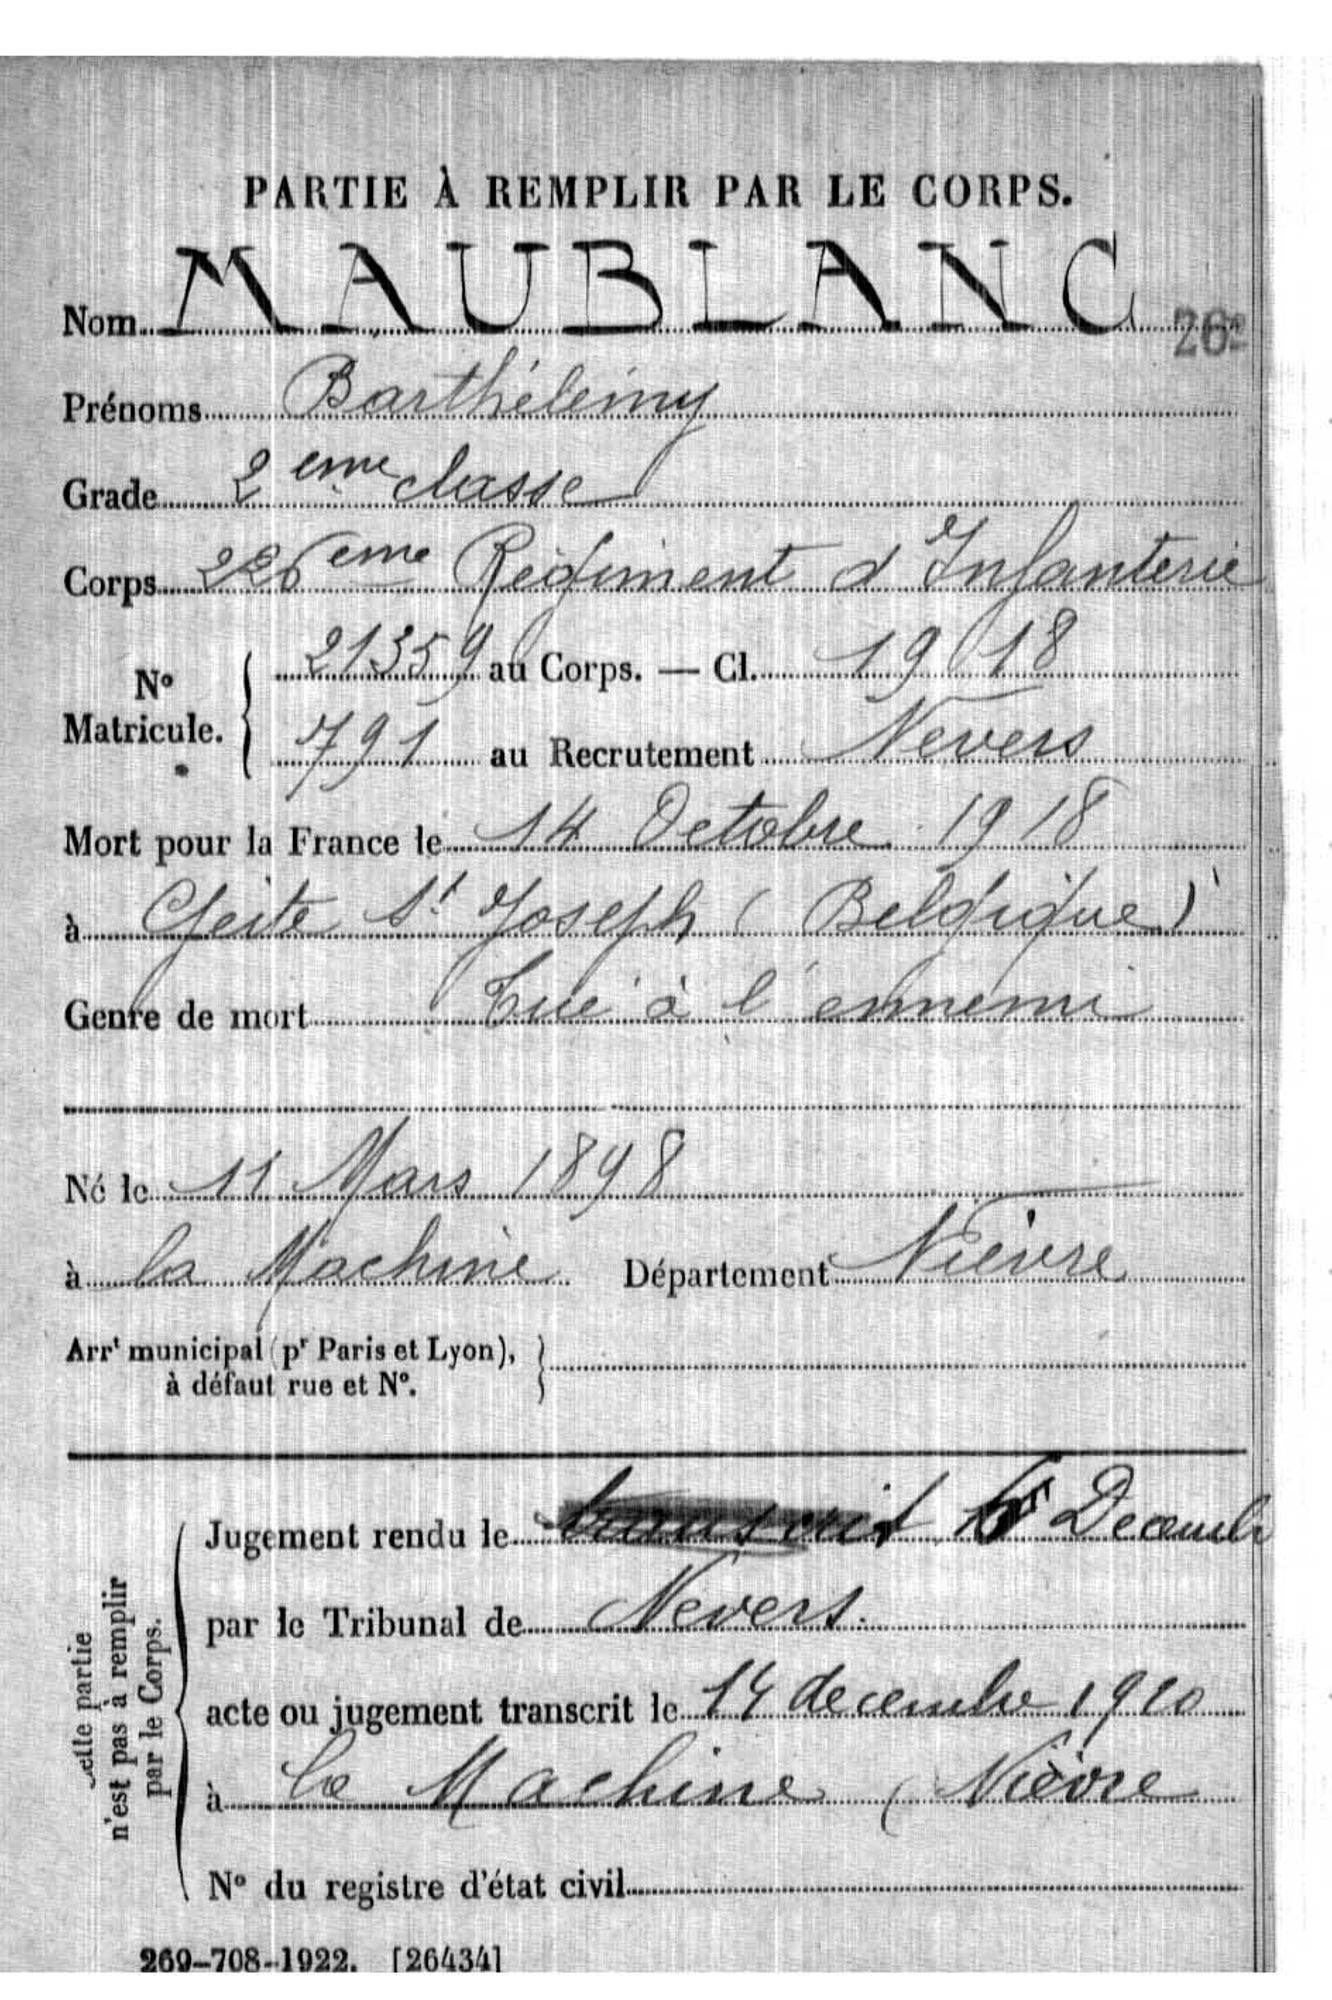 PARTIE À REMPLIR PAR LE CORPS.
Nom MAUBLANC
26e
Prénoms Barthélémy
Grade 2ème classe
Corps 226ème Régiment d'Infanterie
No Matricule. { 21359 au Corps. — Cl. 1918
791 au Recrutement Nevers
Mort pour la France le 14 Octobre 1918
à St Joseph (Belgique)
Genre de mort Tué à l'ennemi
Né le 11 Mars 1898
à la Machine Département Nièvre
Arrt municipal (pr Paris et Lyon), }
à défaut rue et No.
Cette partie
n'est pas à remplir
par le Corps.
Jugement rendu le Decemb
par le Tribunal de Nevers.
acte ou jugement transcrit le 14 decembre
à La Machine (Nièvre
No du registre d'état civil
269-708-1922. [26434]